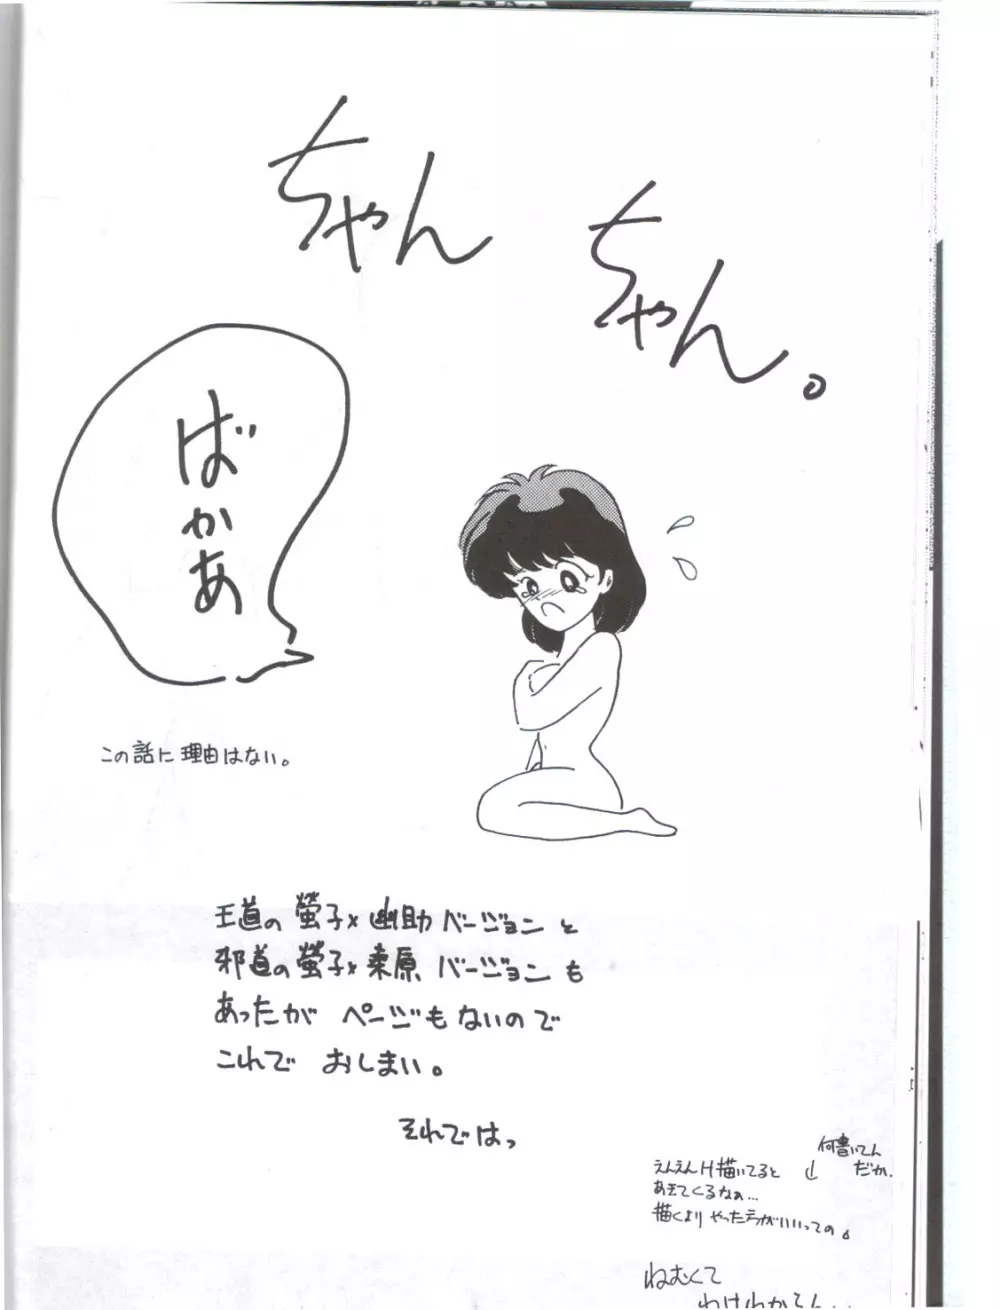 ちゃん
ちゃん。
ばかあ
この話に理由はない。
王道の螢子×幽助バージョンと
邪道の螢子×桑原バージョンも
あったが ページもないので
これで おしまい。
それではっ
何書いてん
だか。
えんえんH描いてると
あきてくるなぁ…
描くより やった方がいいっての。
ねむくて
わけわかてん…